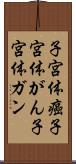 子宮体癌子
宮体がん子
宮体ガン